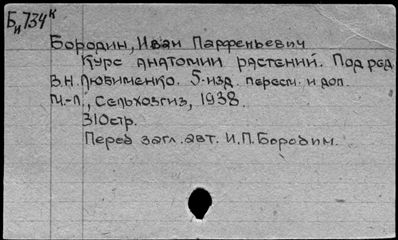 Би734к
Бородин, Иван Парфеньевич
Курс анатомии растений. Под ред.
В.Н. Любименко. 5-изд. пересм. и доп.
М.-Л., Сельхозгиз, 1938.
310стр.
Перед загл. авт. И.П. Бородин.